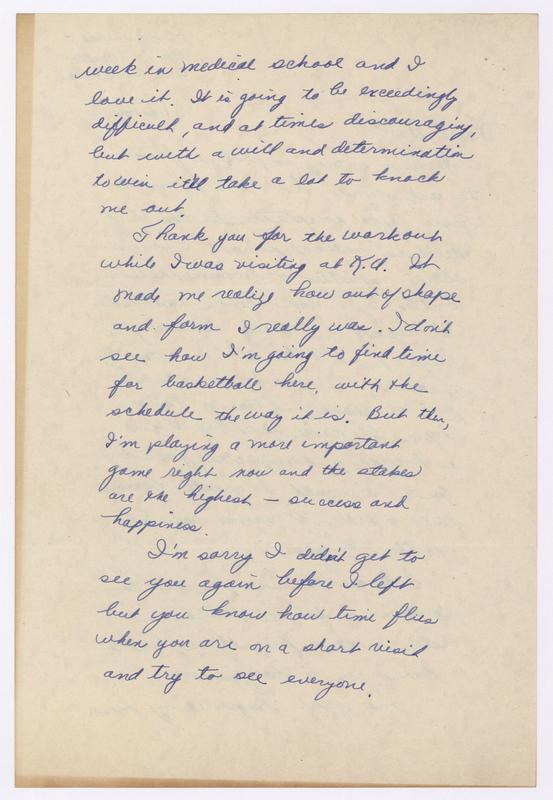 week in medical school and I
love it. It is going to be exceedingly
difficult, and at times discouraging,
but with a will and determination
to win it'll take a lot to knock
me out.
Thank you for the workout
while I was visiting at K.U. It
made me realize how out of shape
and form I really was. I don't
see how I'm going to find time
for basketball here, with the
schedule the way it is. But then,
I'm playing a more important
game right now and the stakes
are the highest — success and
happiness.
I'm sorry I didn't get to
see you again before I left
but you know how time flies
when you are on a short visit
and try to see everyone.